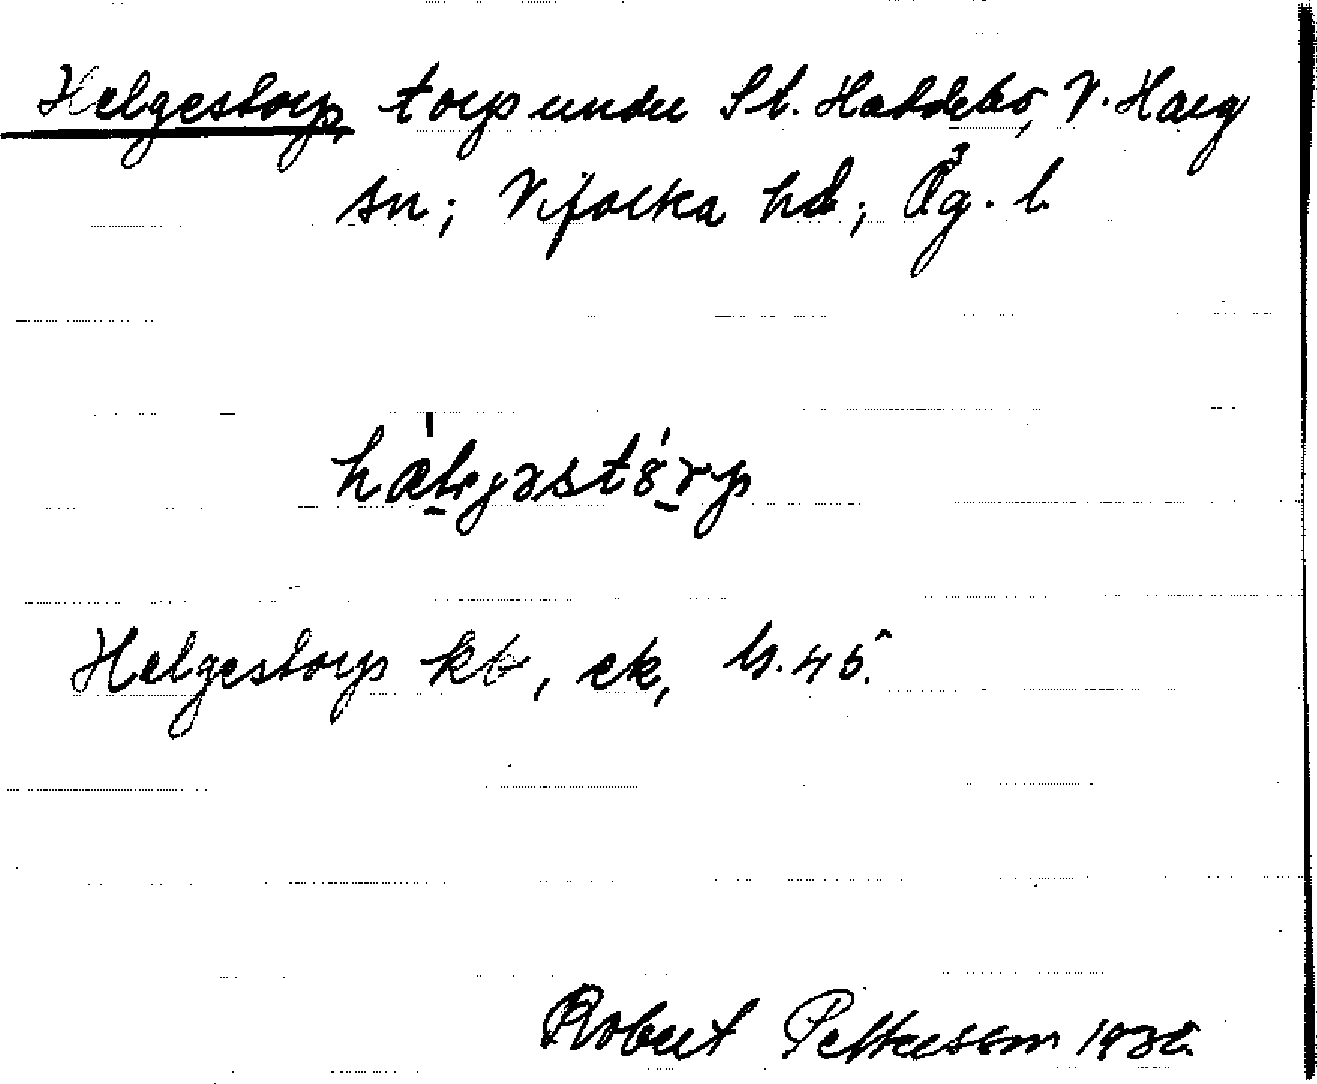 Helgestorp, torp under St. Haddebo, V. Harg
sn; Vifolka hd; Ög. l.
hælgastørp
Helgestorp kb, ek, bl. 45.
Robert Pettersson 1932